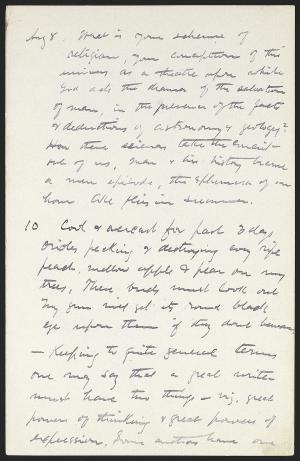 Aug 8. What is your scheme of
religion, your conception of this
universe as a theatre upon which
God acts the drama of the salvation
of man, in the presence of the facts
& deductions of astronomy & geology?
How these sciences take the conceit
out of us, man & his history become
a mere episode, the ephemera of an
hour like flies in summer.
10 Cool & overcast for past 3 days,
Orioles pecking & destroying every ripe
peach, mellow apple & pear on my
trees, These birds must look out
My gun will get its round black
eye upon them if they dont beware,
— Keeping to quite general terms
one may say that a great writer
must have two things — viz, great
powers of thinking & great powers of
expression. Some authors have one